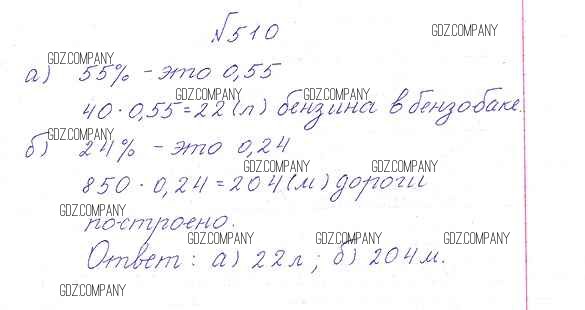 №510
GDZ.COMPANY
GDZ.COMPANY
а) 55% - это 0,55
GDZ.COMPANY GDZ.COMPANY
40 · 0,55 = 22 (л) бензина в бензобаке.
GDZ.COMPANY
б) 24% - это 0,24
GDZ.COMPANY GDZ.COMPANY
850 · 0,24 = 204 (м) дороги
GDZ.COMPANY
построено.
GDZ.COMPANY GDZ.COMPANY GDZ.COMPANY
Ответ: а) 22 л; б) 204 м.
GDZ.COMPANY